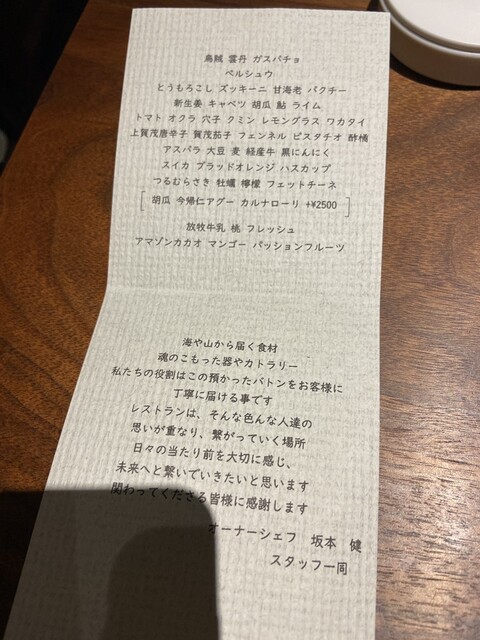 烏賊 雲丹 ガスパチョ
ペルシュウ
とうもろこし ズッキーニ 甘海老 パクチー
新生姜 キャベツ 胡瓜 鮎 ライム
トマト オクラ 穴子 クミン レモングラス ワカタイ
上賀茂唐辛子 賀茂茄子 フェンネル ピスタチオ 酢橘
アスパラ 大豆 麦 経産牛 黒にんにく
スイカ ブラッドオレンジ ハスカップ
つるむらさき 牡蠣 檸檬 フェットチーネ
[ 胡瓜 今帰仁アグー カルナローリ +¥2500 ]
放牧牛乳 桃 フレッシュ
アマゾンカカオ マンゴー パッションフルーツ
海や山から届く食材
魂のこもった器やカトラリー
私たちの役割はこの預かったバトンをお客様に
丁寧に届ける事です
レストランは、そんな色んな人達の
思いが重なり、繋がっていく場所
日々の当たり前を大切に感じ、
未来へと繋いでいきたいと思います
関わってくださる皆様に感謝します
オーナーシェフ 坂本 健
スタッフ一同